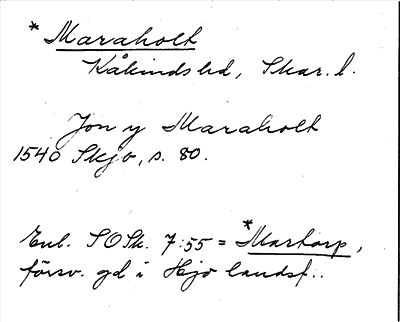 * Maraholt
Kåkinds hd, Skar. l.
Jon y Maraholt
1540 Skjo, s. 80.
Enl. SOSk. 7:55 = *Martorp,
försv. gd i Hjo landsf..